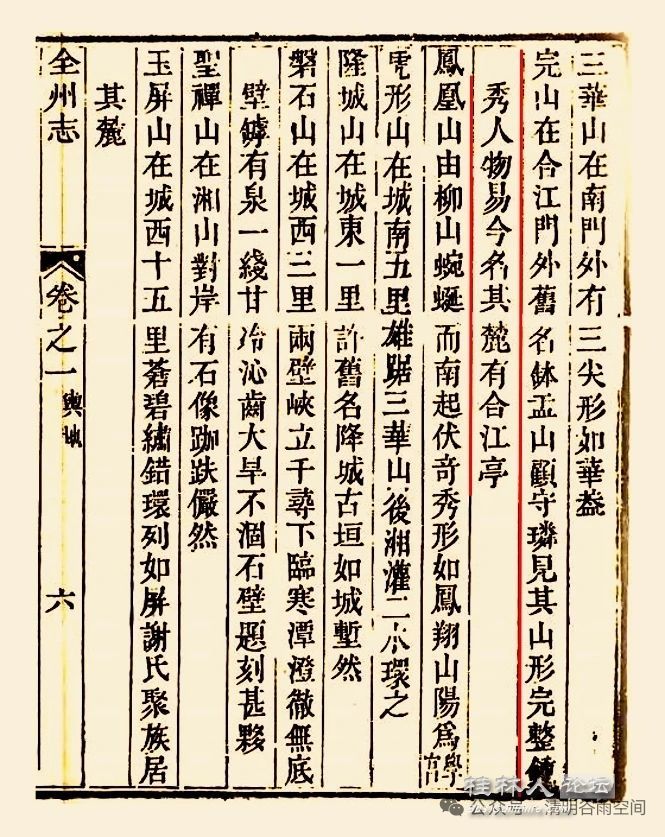 三華山在南門外有三尖形如華葢
完山在合江門外舊名鉢盂山顧守璘見其山形完整鍾
秀人物易今名其麓有合江亭
鳳凰山由柳山蜿蜒而南起伏奇秀形如鳳翔山陽爲學宫
虎形山在城南五里雄踞三華山後湘灌二水環之
隆城山在城東一里許舊名降城古垣如城塹然
磐石山在城西三里兩壁峽立千尋下臨寒潭澄徹無底
壁罅有泉一綫甘冷沁齒大旱不涸石壁題刻甚夥
聖禪山在湘山對岸有石像跏趺儼然
玉屏山在城西十五里蒼碧繡錯環列如屏謝氏聚族居
其麓
全州志
卷之一
輿地
六
桂林人论坛
公众号·清明谷雨空间